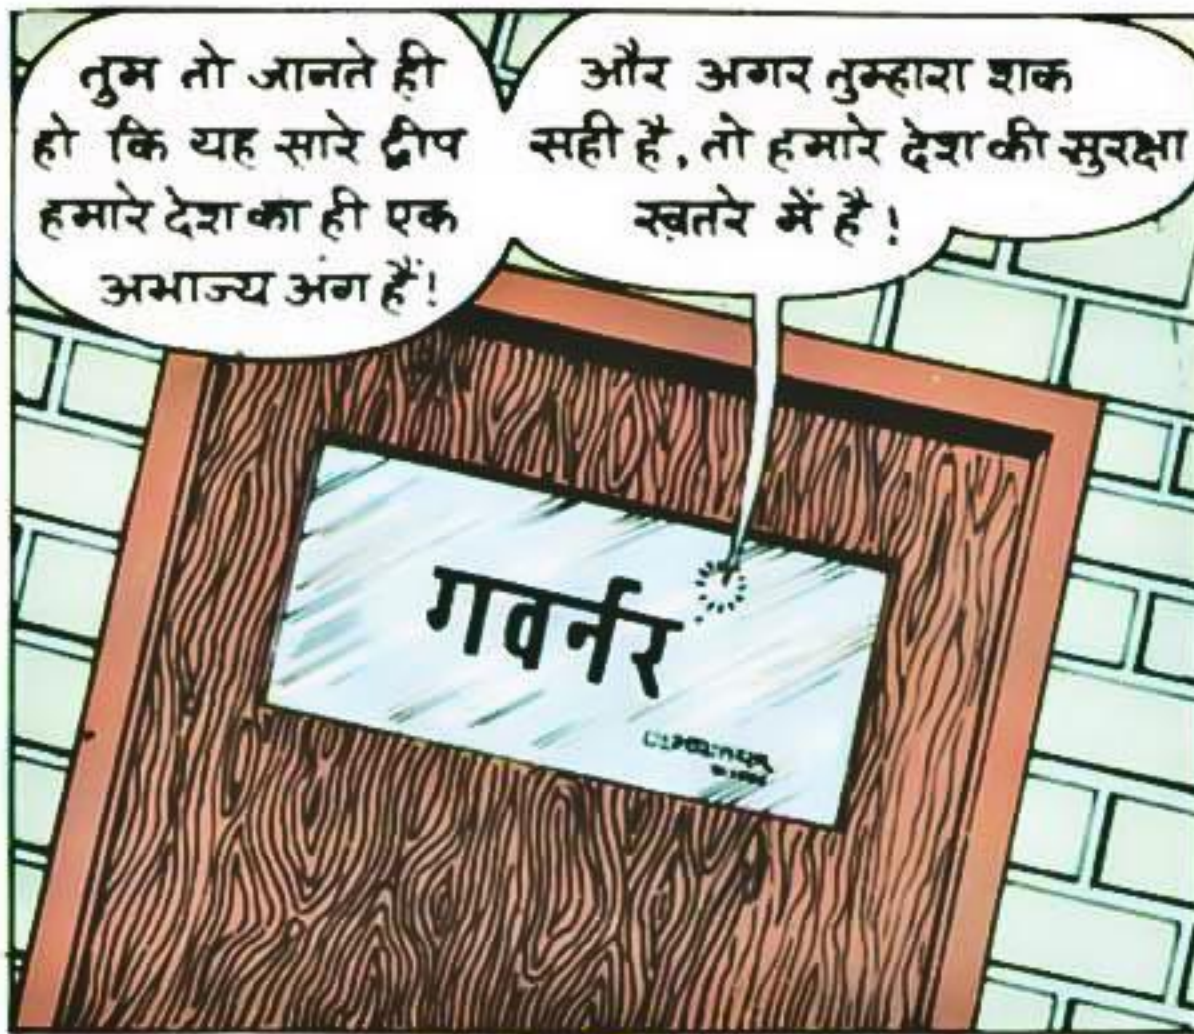 तुम तो जानते ही
हो कि यह सारे द्वीप
हमारे देश का ही एक
अभाज्य अंग हैं!
और अगर तुम्हारा शक
सही है, तो हमारे देश की सुरक्षा
ख़तरे में है!
गवर्नर